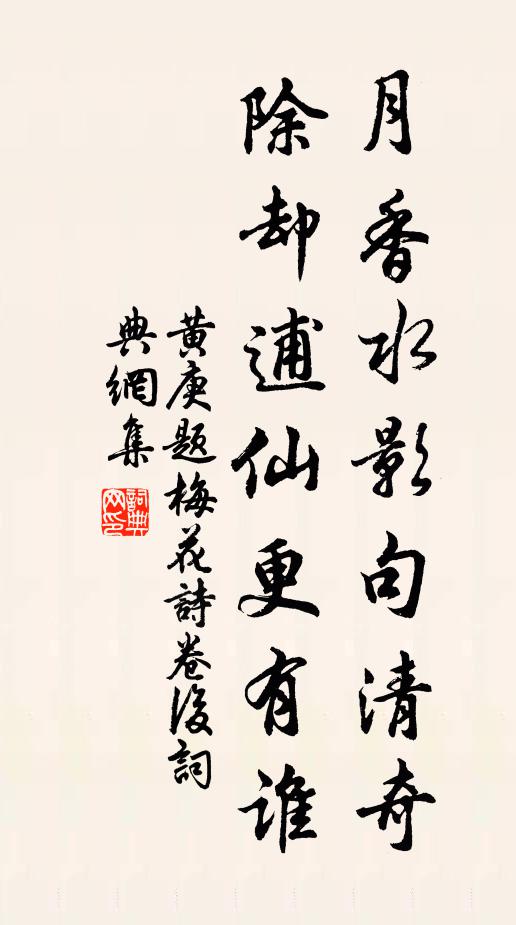 月香水影句清奇
除却逋仙更有谁
黄庚题梅花詩卷後詞
典網集
詞典網印